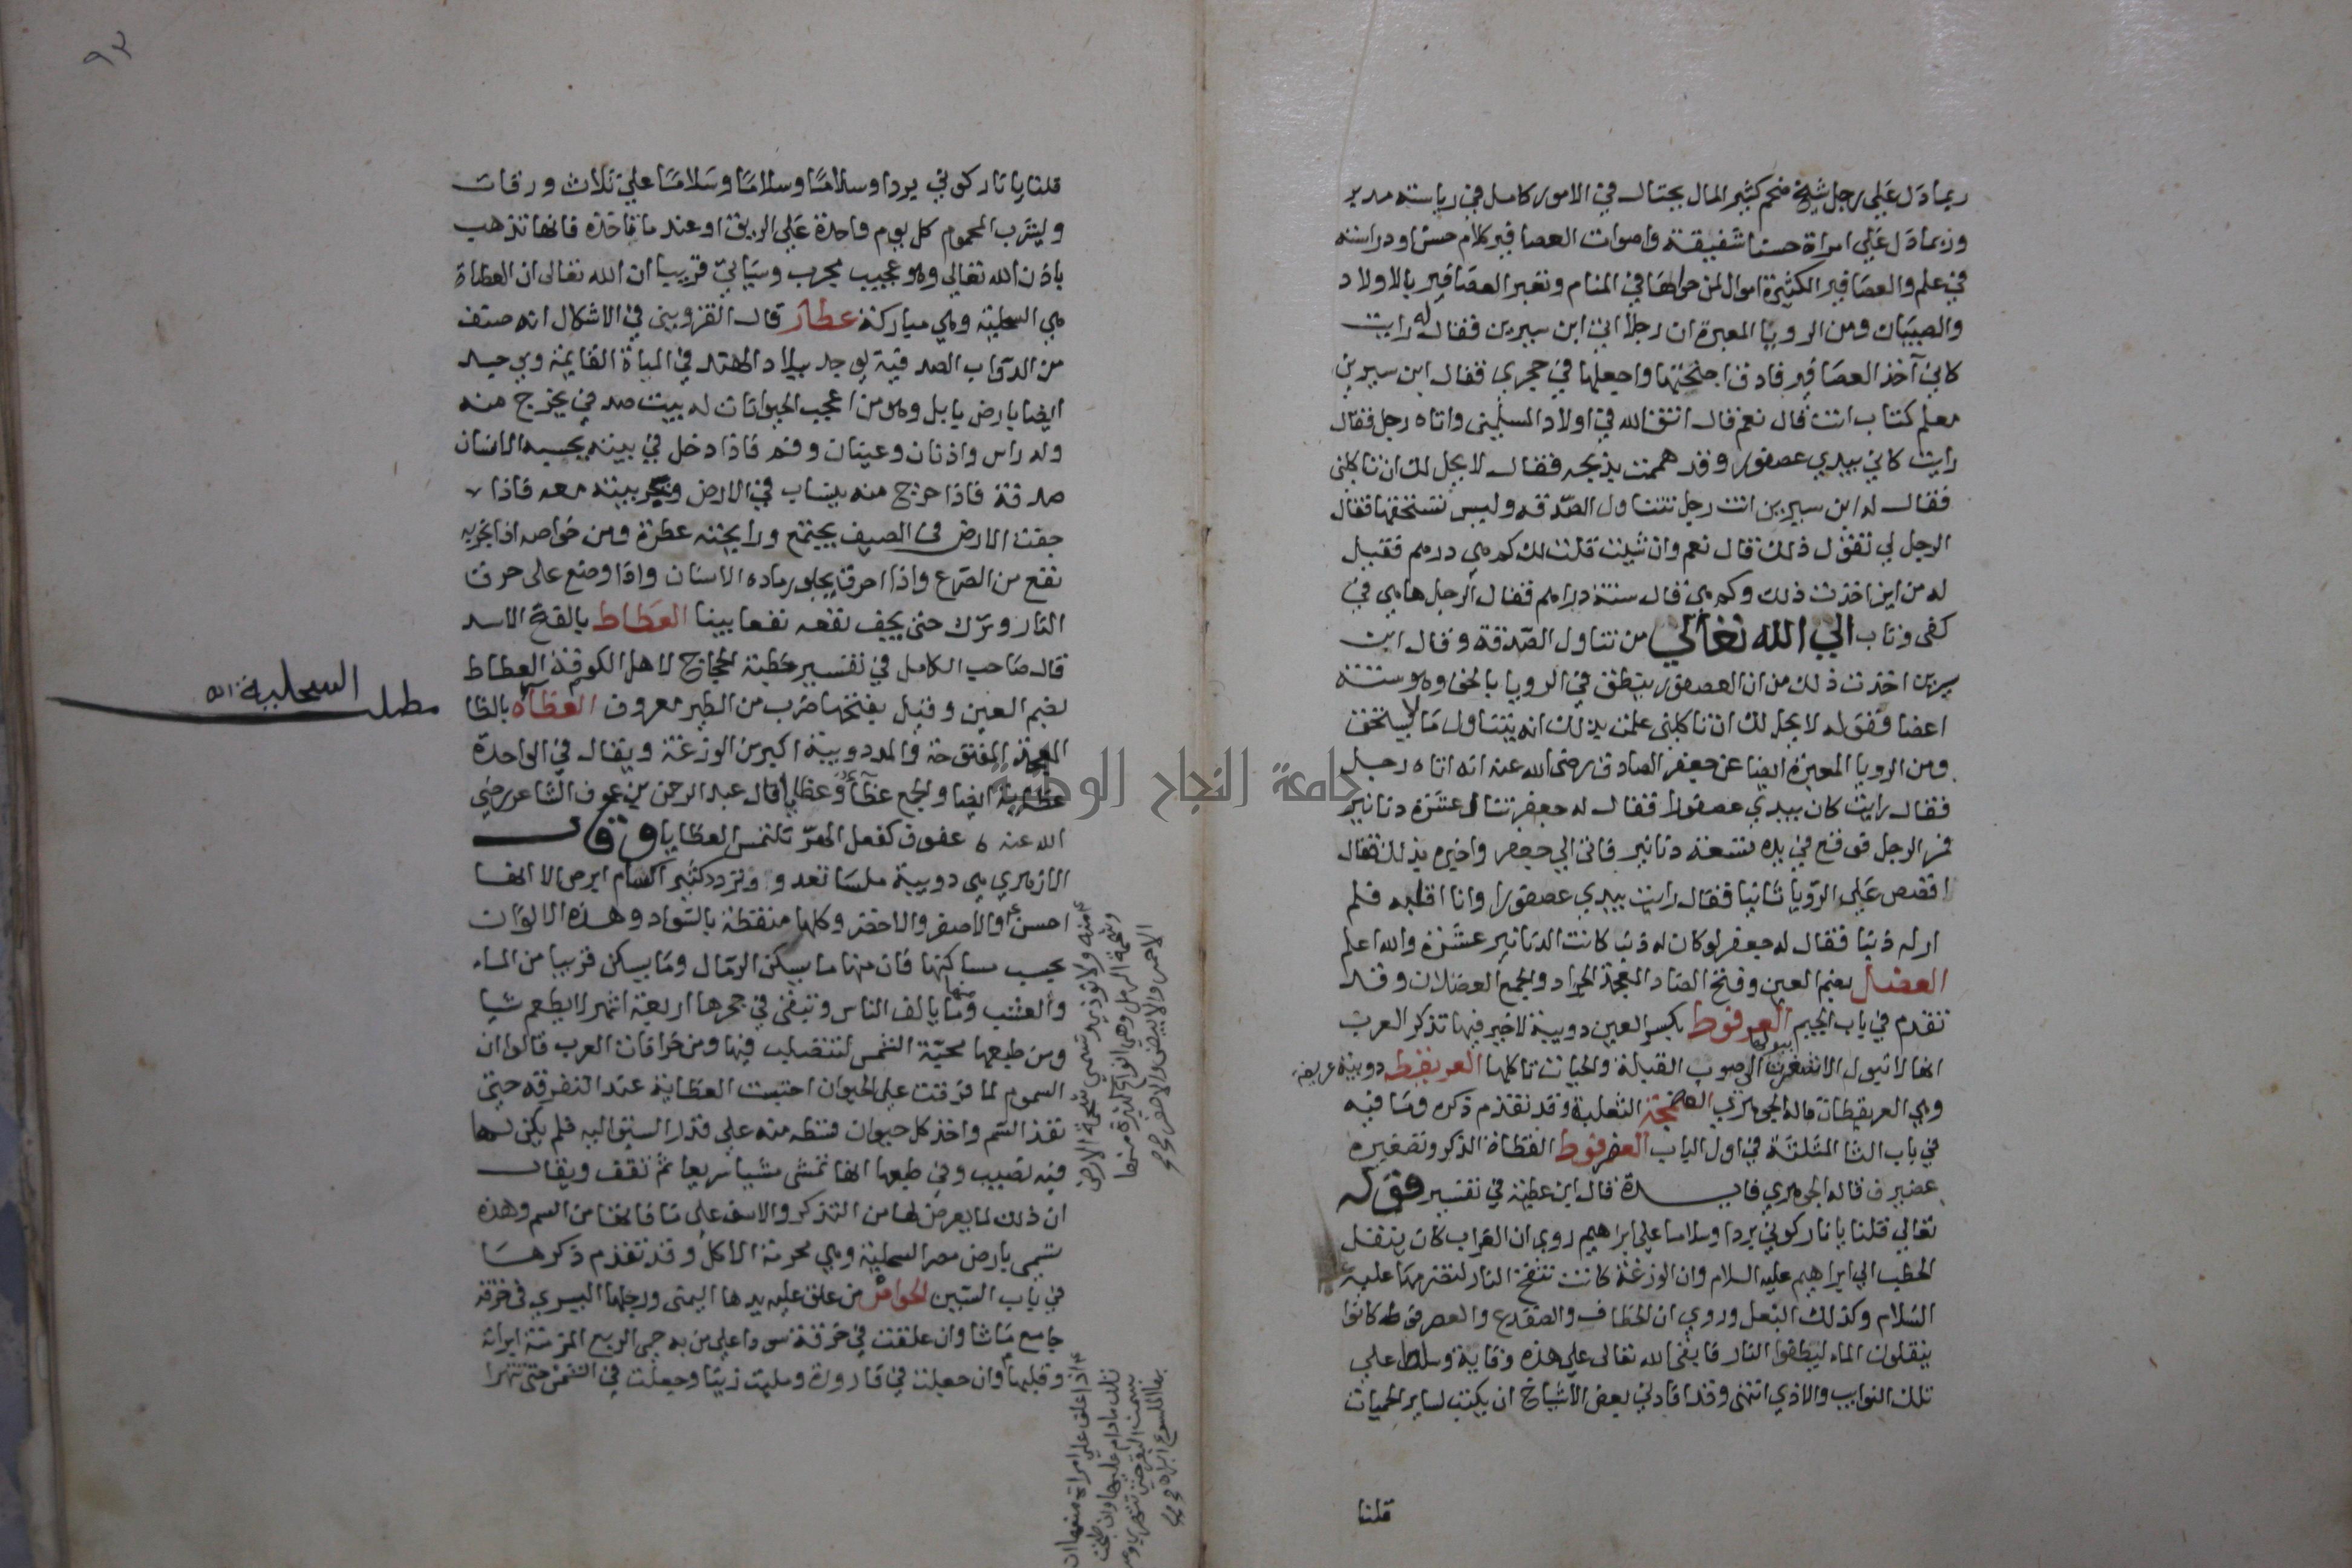 ربما دل على رجل شيخ ضخم كثير المال يحتال في الامور كامل في رياسته مدبر
وربما دل على امراة حسنا شفيقة واصوات العصافير كلام حسن او دراسة
في علم والعصافير الكثيرة اموال لمن حواها في المنام وتعبر العصافير بالاولاد
والصبيان ومن الرويا المعبرة ان رجلا اتى ابن سيرين فقال له رايت
كاني آخذ العصافير فادق اجنحتها واجعلها في حجري فقال ابن سيرين
معلم كتاب انت قال نعم قال اتق الله في اولاد المسلمين واتاه رجل فقال
رايت كاني بيدي عصفور وقد هممت بذبحه فقال لا يحل لك ان تاكلني
فقال له ابن سيرين انت رجل تتناول الصدقه وليس تستحقها فقال
الرجل لي تقول ذلك قال نعم وان شيت قلت لك كم هي درهم فقيل
له من اين اخذت ذلك وكم هي قال ستة دراهم فقال الرجل ها هي في
كفي وتاب الي الله تعالي من تناول الصدقة وقال ابن
سيرين اخذت ذلك من ان العصفور ينطق في الرويا بالحق وهو ستة
اعضا وقوله لا يحل لك ان تاكلني علمت بذلك انه يتناول ما لا يستحق
ومن الرويا المعبرة ايضا عن جعفر الصادق رضي الله عنه انه اتاه رجل
فقال رايت كان بيدي عصفورا فقال له جعفر تنال عشرة دنانير
فمر الرجل فوقع في يده تسعة دنانير فاتى الي جعفر واخبره بذلك فقال
اقصص علي الرويا ثانيا فقال رايت بيدي عصفورا وانا اقلبه فلم
ار له ذنبا فقال له جعفر لو كان له ذنب كانت الدنانير عشرة والله اعلم
العضل بضم العين وفتح الضاد المعجمة الجراد والجمع العضلان وقد
تقدم في باب الجيم العرفوط بكسر العين دويبة لا خير فيها تذكر العرب
انها لا تبول الا شغرت ببولها الي صوب القبلة والحيات تاكلها العريقطه دويبة عريضة
وهي العريقطان قاله الجوهري العضمجة الثعلبة وقد تقدم ذكره وما فيه
في باب الثا المثلثة في اول الباب العضرفوط العظاة الذكر وتصغيره
عضيرف قاله الجوهري فايدة قال ابن عطية في تفسير قوله
تعالي قلنا يا نار كوني بردا وسلاما علي ابراهيم روي ان الغراب كان ينقل
الحطب الي ابراهيم عليه السلام وان الوزغة كانت تنفخ النار لتضرمها عليه
السلام وكذلك البغل وروي ان الخطاف والضفدع والعضرفوط كانوا
ينقلون الماء ليطفوا النار فابقى الله تعالى علي هذه وقاية وسلط علي
تلك النوايب والاذي انتهى وقد افادني بعض الاشياخ ان يكتب لساير الحميات
قلنا
٩٣
قلنا يا نار كوني بردا وسلاما وسلاما وسلاما علي ثلاث ورقات
وليشرب المحموم كل يوم واحدة علي الريق او عند ما تاخذه فانها تذهب
باذن الله تعالي وهو عجيب مجرب وسياتي قريبا ان الله تعالى ان العظاة
هي السحلية وهي مباركة عطار قال القزويني في الاشكال انه صنف
من الدواب الصدفية يوجد ببلاد الهند في المياة القايمة ويوجد
ايضا بارض بابل وهو من اعجب الحيوانات له بيت صدفي يخرج منه
وله راس واذنان وعينان وفم فاذا دخل في بيته يحسبه الانسان
صدفة فاذا خرج منه ينساب في الارض ويجر بيته معه فاذا
جفت الارض في الصيف يجتمع ورايحته عطرة ومن خواصه اذا بخر به
نفع من الصرع واذا احرق يجلو رماده الاسنان واذا وضع على حرق
النار وترك حتى يجف نفعه نفعا بينا العطاط بالفتح الاسد
قال صاحب الكامل في تفسير خطبة الحجاج لاهل الكوفة العطاط
بضم العين وقيل بفتحها ضرب من الطير معروف العظآه بالظا
المعجمة المفتوحة والمد دويبة اكبر من الوزغة ويقال في الواحدة
عظاية ايضا والجمع عظآ وعظايا قال عبد الرحمن بن عوف الشاعر رضي
الله عنه كفعل الهر تلتمس العظايا وقال
الازهري هي دويبة ملسا تعدو وتتردد كثيرا تشبه سام ابرص الا انها
احسن والاصفر والاخضر وكلها منقطة بالسواد وهذه الالوان
بحسب مساكنها فان منها ما يسكن الرمال وما يسكن قريبا من الماء
والعشب ومنها ما يالف الناس وتبقى في جحرها اربعة اشهر لا يطعم شيا
ومن طبعها محبة الشمس لتتصلب فيها ومن خرافات العرب قالوا ان
السموم لما فرقت علي الحيوان احتبست العظاية عند التفرقه حتي
نفذ السم واخذ كل حيوان قسطه منه علي قدر السبق اليه فلم يكن لها
فيه نصيب وفي طبعها انها تمشى مشيا سريعا ثم تقف ويقال
ان ذلك لما يعرض لها من التذكر والاسف علي ما فاتها من السم وهذه
تسمى بارض مصر السحلية وهي محرمة الاكل وقد تقدم ذكرها
في باب السين الخواص من علق عليه يدها اليمنى ورجلها اليسري في خرقة
جامع ما شا وان علقت في خرقة سودا علي من به حمى الربع المزمنة ابراته
وقلبها وان جعلت في قارورة ومليت زيتا وجعلت في الشمس حتى تتهرا
مطلب السحلية
منه ولا توذي وتسمي شحمة الارض
وشحمة الرمل وهي انواع كثيرة منها
الاحمر والابيض والاصفر
اذا علق علي امراة منعها ان
تلد ما دام عليها وان طبخت
بسمن البقر حتي تتهري
بها الملسوع ابراه
جامعة النجاح الوطنية